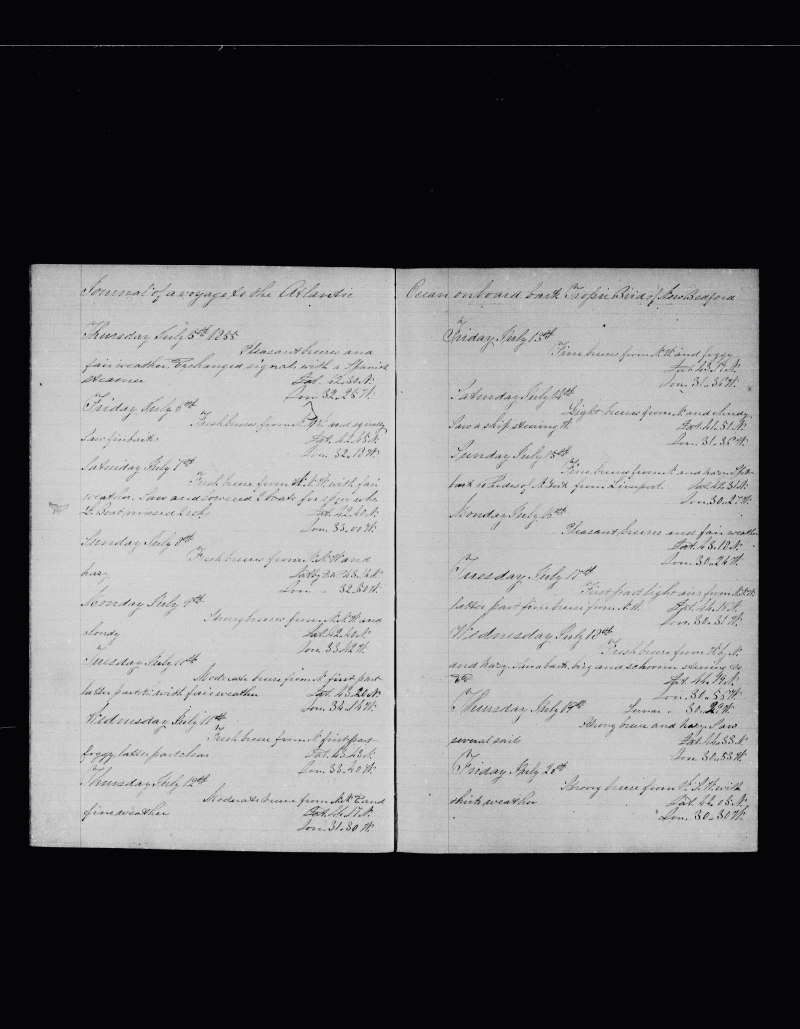 Journal of a voyage to the Atlantic
Thursday July 5th 1855
Pleasant breezes and
fair weather. Exchanged signals with a Spanish
steamer Lat. 42.30 N.
Lon. 32.28 W.
Friday July 6th
Fresh breezes from and squally
Saw finbacks Lat. 42.45 N.
Lon. 32.18 W.
Saturday July 7th
Fresh breeze from N.N.W. with fair
weather. Saw and lowered 2 boats for spm whs
L. Boat missed Lat. 42.40 N.
Lon. 33.00 W.
Sunday July 8th
Fresh breezes from N.N.W. and
hazy Lat. by
Lon. " 32.50 W.
Monday July 9th
Strong breezes from N.N.W. and
cloudy Lat. 42.40 N.
Lon. 33.42 W.
Tuesday July 10th
Moderate breeze from N. first part
latter part with fair weather Lat. 43.20 N.
Lon. 34.14 W.
Wednesday July 11th
Fresh breeze from N. first part
foggy latter part clear Lat. 43.43 N.
Lon. 33.40 W.
Thursday July 12th
Moderate breeze from and
fine weather Lat. 44.17 N.
Lon. 31.30 W.
Ocean onboard bark Tropic Bird of New Bedford
Friday July 13th
Fine breezes from N.W. and foggy
Lat. 43.19 N.
Lon. 31.36 W.
Saturday July 14th
Light breezes from N. and cloudy.
Saw a ship steering W. Lat. 44.51 N.
Lon. 31.32 W.
Sunday July 15th
Fine breezes from N. and hazy.
bark of N. York from Liverpool. Lat. 44.31 N.
Lon. 30.27 W.
Monday July 16th
Pleasant breezes and fair weather
Lat. 43.18 N.
Lon. 30.24 W.
Tuesday July 17th
First part light airs from N.N.W.
latter part fine breeze from N.W. Lat. 44.15 N.
Lon. 30.31 W.
Wednesday July 18th
Fresh breeze from W. by N.
and hazy. Saw a bark brig and schooner steering to
Lat. 44.19 N.
Lon. 30.55 W.
Thursday July 19th Lunar " 30.29 W.
Strong breeze and hazy. Saw
several sails Lat. 44.33 N.
Lon. 30.53 W.
Friday July 20th
Strong breeze from W.S.W. with
thick weather Lat. 44.05 N.
Lon. 30.30 W.